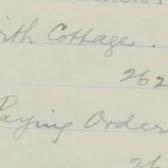 rth Cottage.
262
Paying Order
26